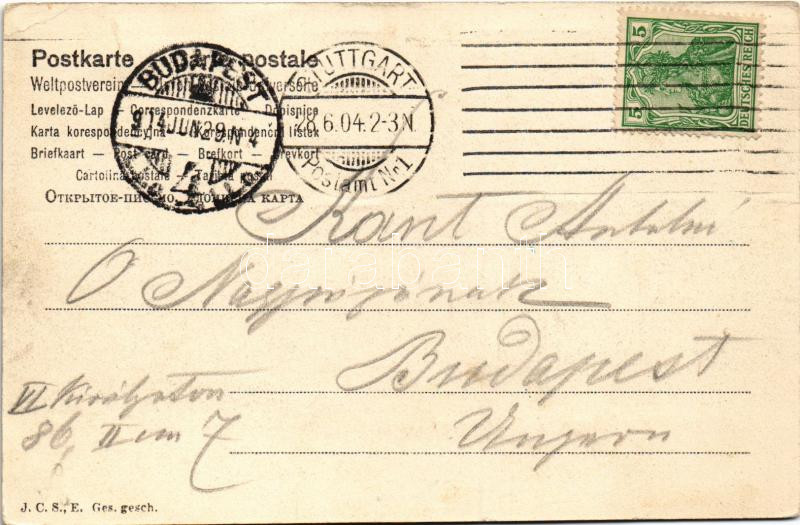 Postkarte postale
Weltpostverein
Levelező-Lap — Correspondenzkarte — Dopisnice
Karta korespondencyjna — Korespondenční lístek
Briefkaart — Post card — Brefkort — Brevkort
Cartolina postale — Tarjeta postal
ОТКРЫТОЕ-ПИСЬМО КАРТА
BUDAPEST
914 JUN 29. N 4
STUTTGART
28.6.04.2-3N.
Postamt No 1
5 5
DEUTSCHES REICH
Kant Antalné
Ő Nagyságának
Budapest
VI Király utca
86, II em 7
Ungarn
J. C. S., E. Ges. gesch.
darabanth